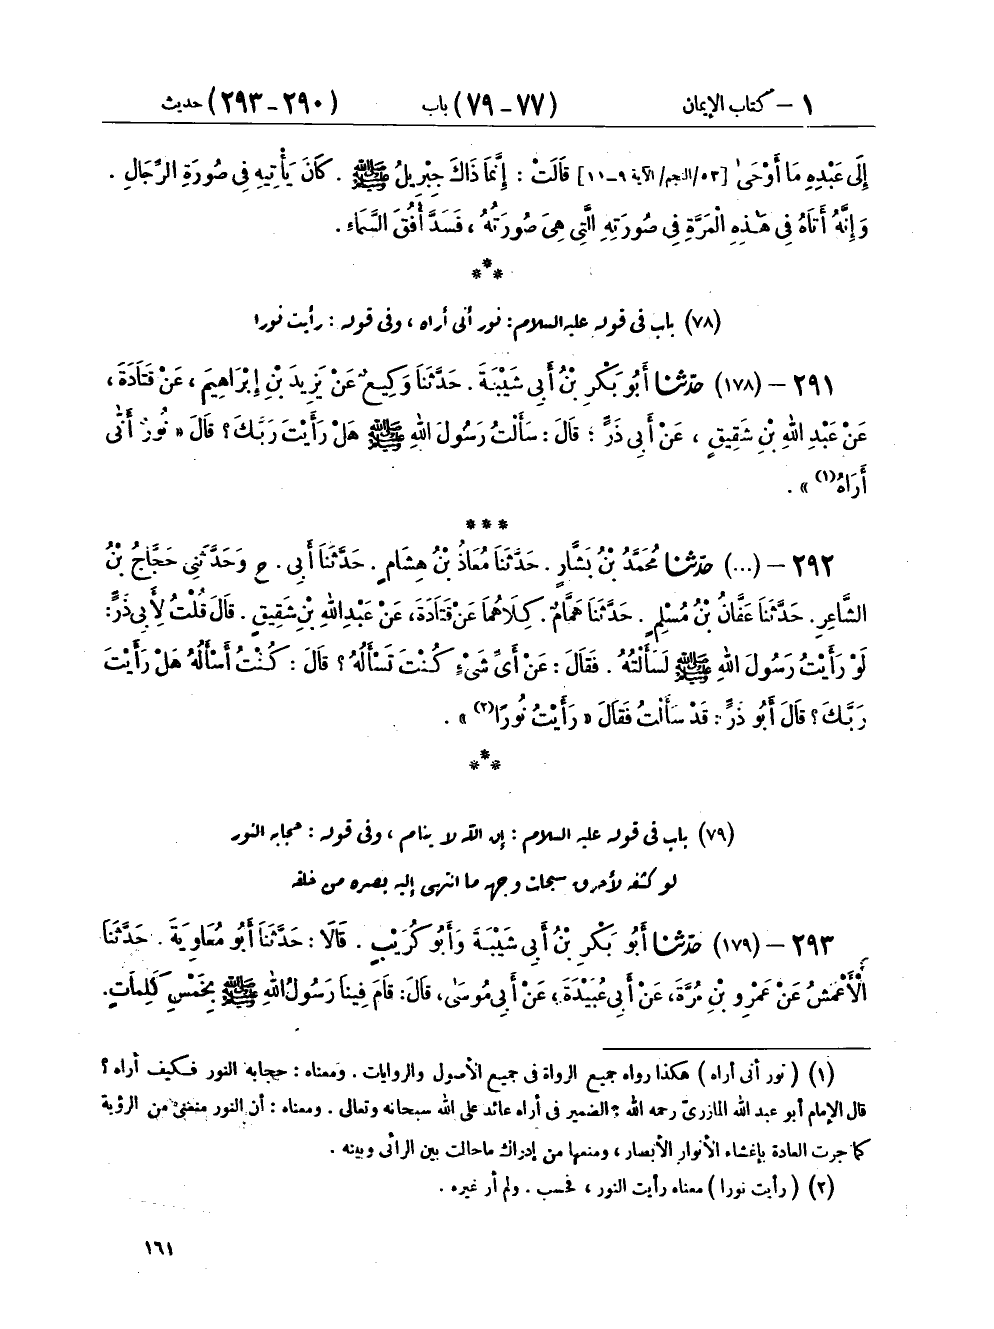 ١ – كتاب الإيمان (٧٧ – ٧٩) باب (٢٩٠ – ٢٩٣) حديث
إِلَى عَبْدِهِ مَا أَوْحَىٰ [٥٣/النجم/الآية ٩–١١] قَالَتْ : إِنَّمَا ذَاكَ جِبْرِيلُ ﷺ . كَانَ يَأْتِيهِ فِى صُورَةِ الرِّجَالِ .
وَإِنَّهُ أَتَاهُ فِى هَٰذِهِ الْمَرَّةِ فِى صُورَتِهِ الَّتِى هِىَ صُورَتُهُ ، فَسَدَّ أُفُقَ السَّمَاءِ .
***
(٧٨) باب فى قوله عليه السلام : نور أنى أراه ، وفى قوله : رأيت نورا
٢٩١ – (١٧٨) حدّثنا أَبُو بَكْرِ بْنُ أَبِى شَيْبَةَ . حَدَّثَنَا وَكِيعٌ عَنْ يَزِيدَ بْنِ إِبْرَاهِيمَ ، عَنْ قَتَادَةَ ،
عَنْ عَبْدِ اللهِ بْنِ شَقِيقٍ ، عَنْ أَبِى ذَرٍّ ؛ قَالَ : سَأَلْتُ رَسُولَ اللهِ ﷺ هَلْ رَأَيْتَ رَبَّكَ ؟ قَالَ « نُورٌ أَنَّى
أَرَاهُ(١) » .
***
٢٩٢ – (...) حدّثنا مُحَمَّدُ بْنُ بَشَّارٍ . حَدَّثَنَا مُعَاذُ بْنُ هِشَامٍ . حَدَّثَنَا أَبِى . ح وَحَدَّثَنِى حَجَّاجُ بْنُ
الشَّاعِرِ . حَدَّثَنَا عَفَّانُ بْنُ مُسْلِمٍ . حَدَّثَنَا هَمَّامٌ . كِلَاهُمَا عَنْ قَتَادَةَ ، عَنْ عَبْدِ اللهِ بْنِ شَقِيقٍ . قَالَ قُلْتُ لِأَبِى ذَرٍّ :
لَوْ رَأَيْتُ رَسُولَ اللهِ ﷺ لَسَأَلْتُهُ . فَقَالَ : عَنْ أَىِّ شَىْءٍ كُنْتَ تَسْأَلُهُ ؟ قَالَ : كُنْتُ أَسْأَلُهُ هَلْ رَأَيْتَ
رَبَّكَ ؟ قَالَ أَبُو ذَرٍّ : قَدْ سَأَلْتُ فَقَالَ « رَأَيْتُ نُورًا(٢) » .
***
(٧٩) باب فى قوله عليه السلام : إن الله لا ينام ، وفى قوله : حجابه النور
لو كشفه لأحرق سبحات وجهه ما انتهى إليه بصره من خلقه
٢٩٣ – (١٧٩) حدّثنا أَبُو بَكْرِ بْنُ أَبِى شَيْبَةَ وَأَبُو كُرَيْبٍ . قَالَا : حَدَّثَنَا أَبُو مُعَاوِيَةَ . حَدَّثَنَا
الْأَعْمَشُ عَنْ عَمْرِو بْنِ مُرَّةَ ، عَنْ أَبِى عُبَيْدَةَ ، عَنْ أَبِى مُوسَى ، قَالَ : قَامَ فِينَا رَسُولُ اللهِ ﷺ بِخَمْسِ كَلِمَاتٍ .
(١) ( نور أنى أراه ) هكذا رواه جميع الرواة فى جميع الأصول والروايات . ومعناه : حجابه النور فكيف أراه ؟
قال الإمام أبو عبد الله المازرىّ رحمه الله : الضمير فى أراه عائد على الله سبحانه وتعالى . ومعناه : أن النور منعنى من الرؤية
كما جرت العادة بإغشاء الأنوار الأبصار ، ومنعها من إدراك ماحالت بين الرائى وبينه .
(٢) ( رأيت نورا ) معناه رأيت النور ، فحسب . ولم أر غيره .
١٦١